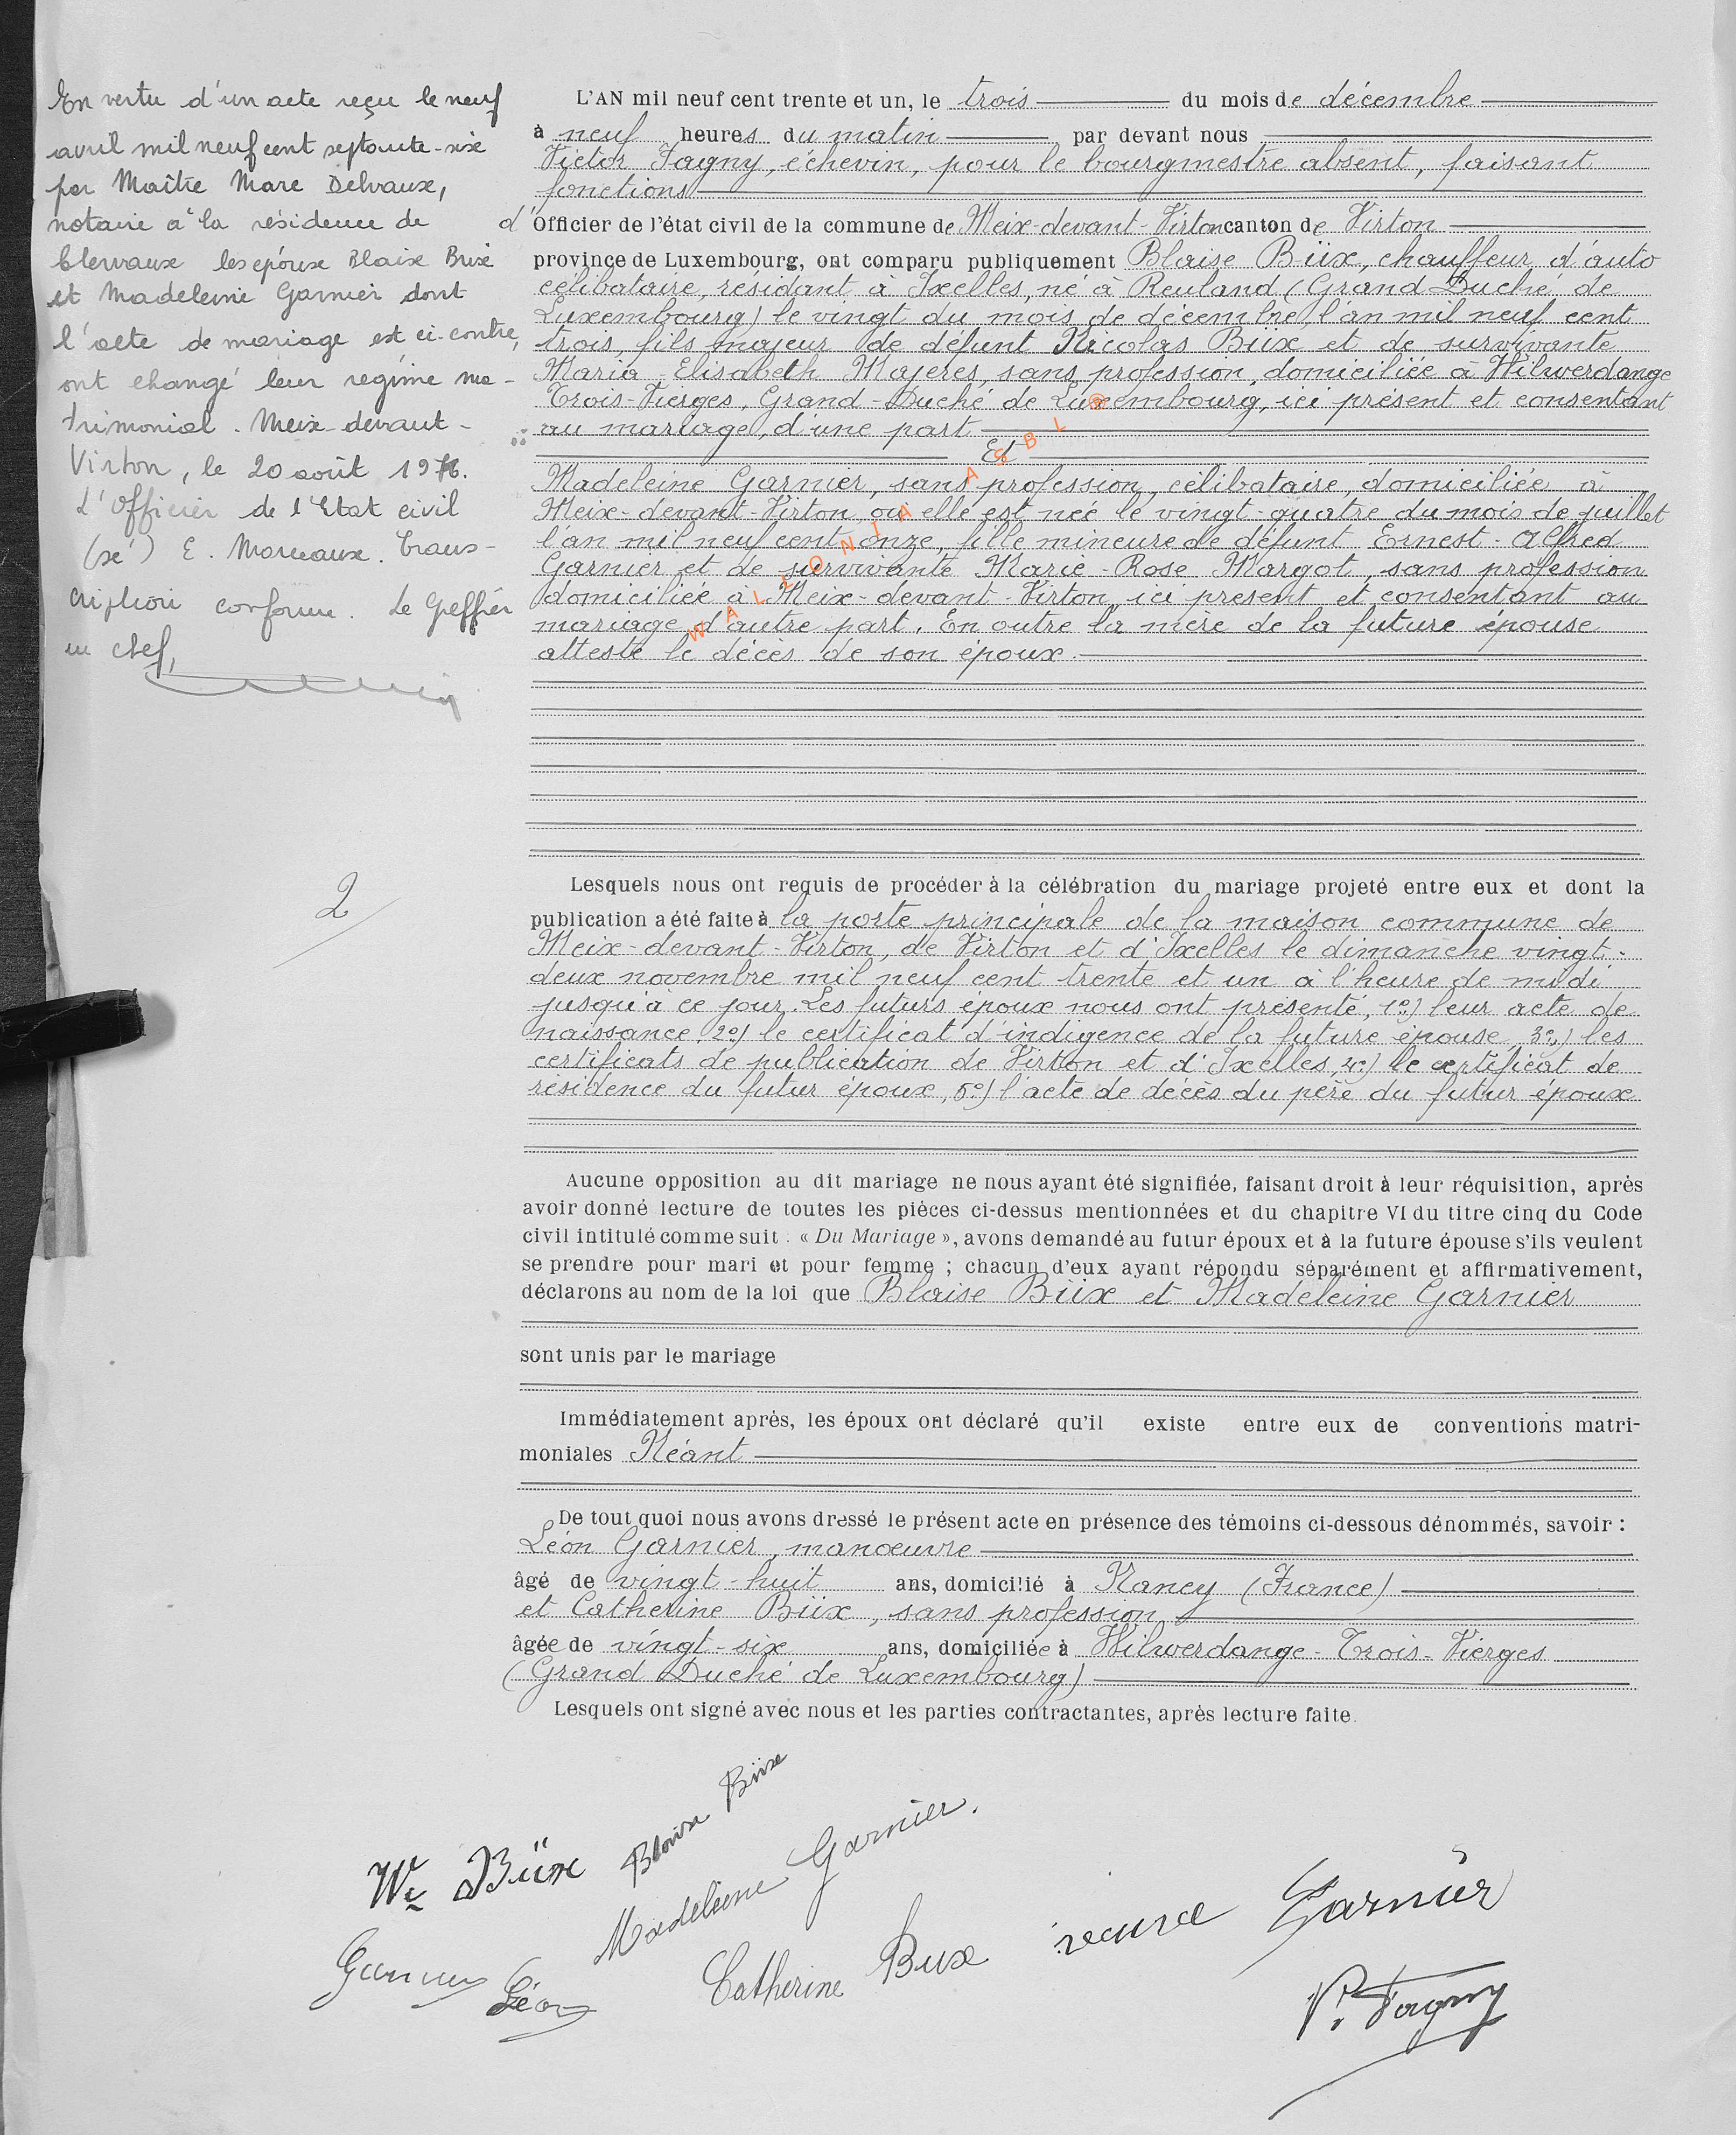 En vertu d'un acte reçu le neuf
avril mil neuf cent septante-six
par Maître Marc Delvaux,
notaire à la résidence de
Clervaux les époux Blaise Büx
et Madeleine Garnier dont
l'acte de mariage est ci-contre,
ont changé leur régime ma-
trimonial. Meix-devant-
Virton, le 20 août 1976.
L'Officier de l'Etat civil
(sé) E. Marceaux. Trans-
cription conforme. Le Greffier
en chef,
2
L'AN mil neuf cent trente et un, le trois du mois de décembre
à neuf heures du matin par devant nous
Victor Fagny, échevin, pour le bourgmestre absent, faisant
fonctions
d'Officier de l'état civil de la commune de Meix-devant-Virton canton de Virton
province de Luxembourg, ont comparu publiquement Blaise Büx, chauffeur d'auto
célibataire, résidant à Ixelles, né à Reuland (Grand Duché de
Luxembourg) le vingt du mois de décembre l'an mil neuf cent
trois, fils majeur de défunt Nicolas Büx et de survivante
Maria-Elisabeth Majerès, sans profession, domiciliée à Hilwerdange
Trois-Vierges, Grand-Duché de Luxembourg, ici présent et consentant
au mariage, d'une part
Et
Madeleine Garnier, sans profession, célibataire, domiciliée à
Meix-devant-Virton où elle est née le vingt-quatre du mois de juillet
l'an mil neuf cent onze, fille mineure de défunt Ernest-Alfred
Garnier et de survivante Marie-Rose Margot, sans profession
domiciliée à Meix-devant-Virton ici présent et consentant au
mariage d'autre part. En outre la mère de la future épouse
atteste le décès de son époux.
WALLONIA ASBL ®
Lesquels nous ont requis de procéder à la célébration du mariage projeté entre eux et dont la
publication a été faite à la porte principale de la maison commune de
Meix-devant-Virton, de Virton et d'Ixelles le dimanche vingt-
deux novembre mil neuf cent trente et un à l'heure de midi
jusqu'à ce jour. Les futurs époux nous ont présenté, 1e) leur acte de
naissance, 2e) le certificat d'indigence de la future épouse, 3e) les
certificats de publication de Virton et d'Ixelles, 4e) le certificat de
résidence du futur époux, 5e) l'acte de décès du père du futur époux
Aucune opposition au dit mariage ne nous ayant été signifiée, faisant droit à leur réquisition, après
avoir donné lecture de toutes les pièces ci-dessus mentionnées et du chapitre VI du titre cinq du Code
civil intitulé comme suit : « Du Mariage », avons demandé au futur époux et à la future épouse s'ils veulent
se prendre pour mari et pour femme ; chacun d'eux ayant répondu séparément et affirmativement,
déclarons au nom de la loi que Blaise Büx et Madeleine Garnier
sont unis par le mariage
Immédiatement après, les époux ont déclaré qu'il existe entre eux de conventions matri-
moniales Néant
De tout quoi nous avons dressé le présent acte en présence des témoins ci-dessous dénommés, savoir :
Léon Garnier, manœuvre
âgé de vingt-huit ans, domicilié à Nancy (France)
et Catherine Büx, sans profession
âgée de vingt-six ans, domiciliée à Hilwerdange-Trois-Vierges
(Grand Duché de Luxembourg)
Lesquels ont signé avec nous et les parties contractantes, après lecture faite.
We Büx Blaise Büx
Madeleine Garnier.
Garnier Léon Catherine Bux veuve Garnier
V. Fagny